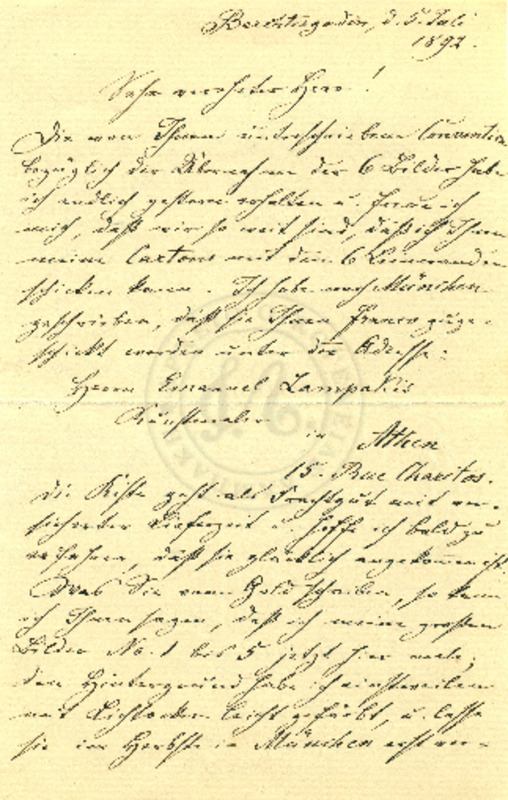 Berchtesgaden, d. 5. Juli
1892.
Sehr verehrter Herr!
Die von Ihnen unterschriebene Convention
bezüglich der Übernahme der 6 Bilder habe
ich endlich gestern erhalten u. freue ich
mich, daß wir so weit sind, daß ich Ihnen
meine Cartons mit den 6 Leinwanden
schicken kann. Ich habe nach München
geschrieben, daß sie Ihnen franco zuge-
schickt werden unter der Adresse:
Herrn Emanuel Lampakis
Kunstmaler
in Athen
15. Rue Charitos.
Die Kiste geht als Frachtgut mit ver-
sicherter Lieferzeit u. hoffe ich bald zu
erfahren, daß sie glücklich angekommen ist.
Was Sie vom Gold schreiben, so kann
ich Ihnen sagen, daß ich meine großen
Bilder No. 1 bis 5 jetzt hier male;
den Hintergrund habe ich einstweilen
mit Lichtocker leicht gefärbt, u. lasse
sie im Herbste in München erst ver-